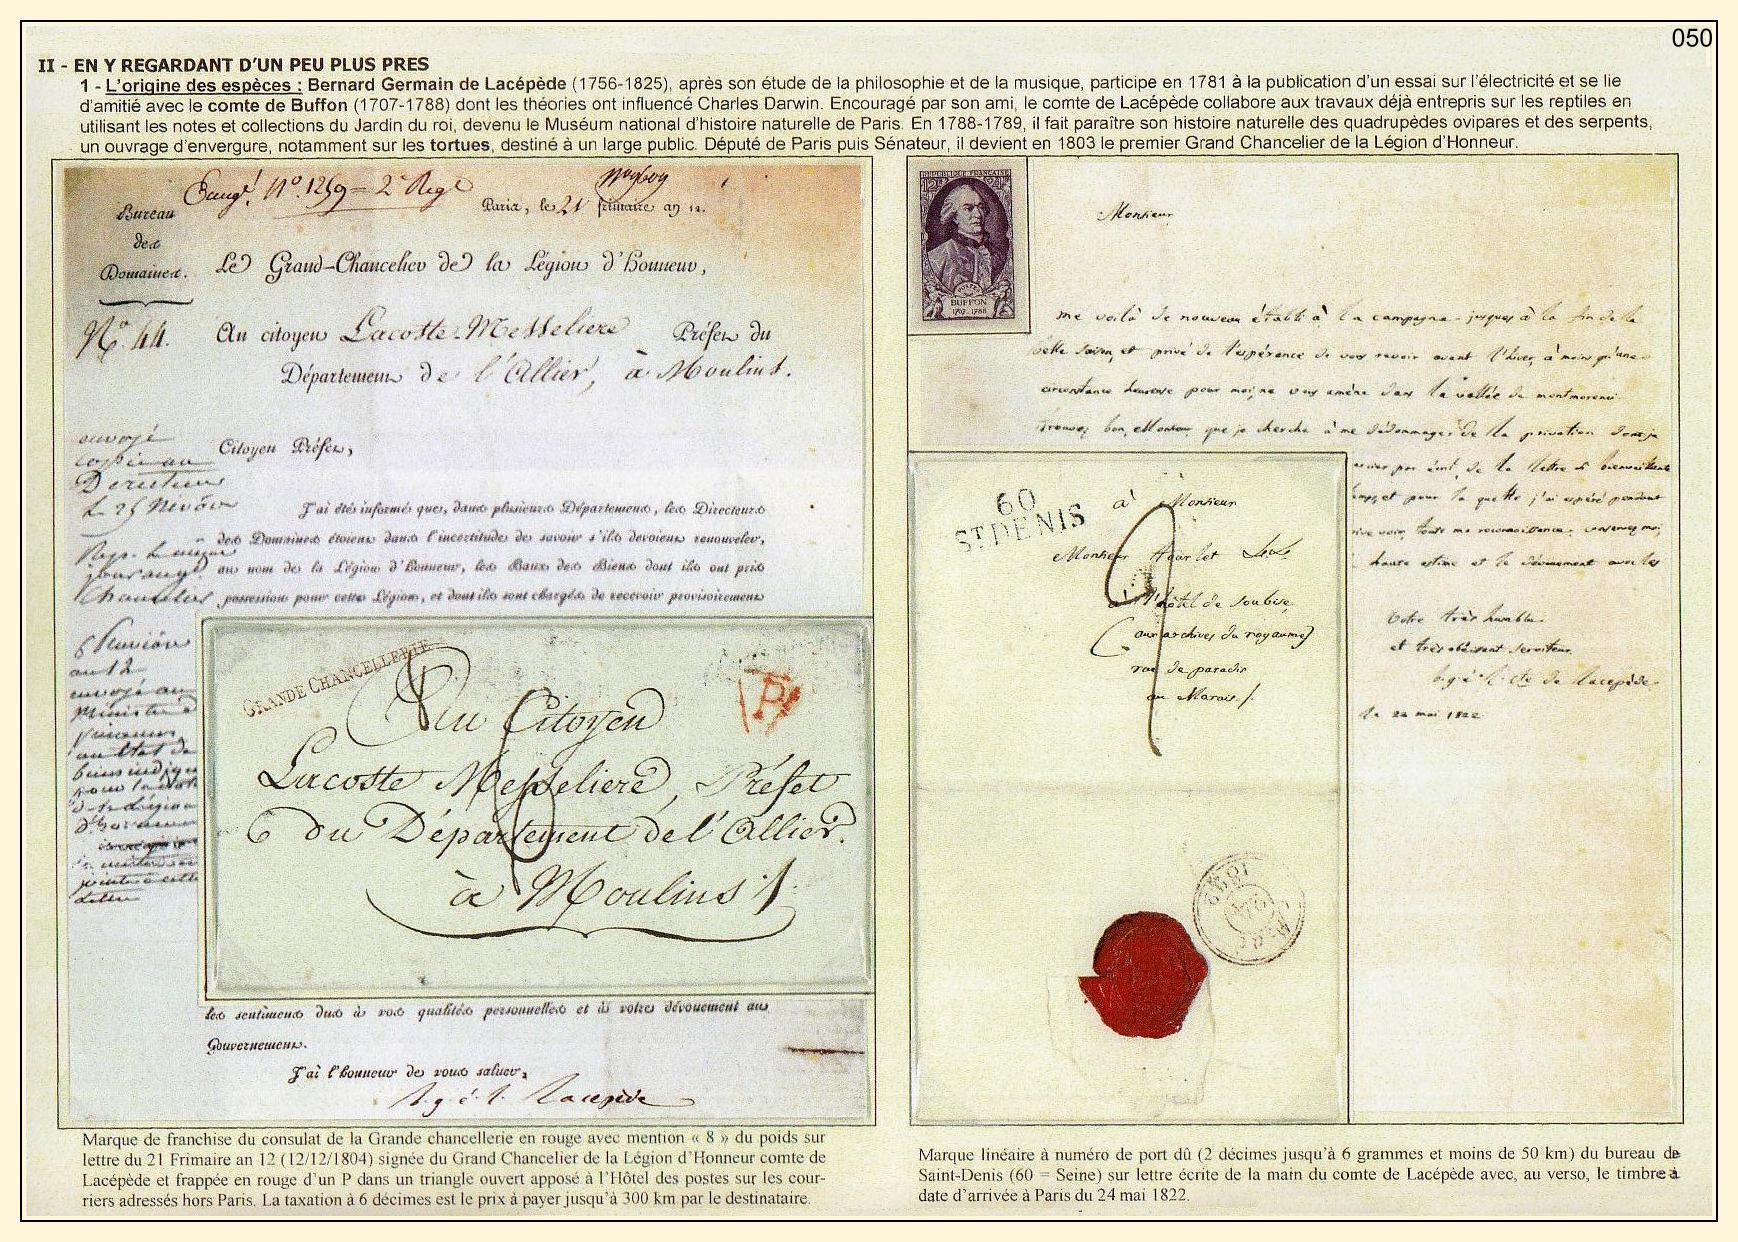 050
II - EN Y REGARDANT D'UN PEU PLUS PRES
1 - L'origine des espèces : Bernard Germain de Lacépède (1756-1825), après son étude de la philosophie et de la musique, participe en 1781 à la publication d'un essai sur l'électricité et se lie
d'amitié avec le comte de Buffon (1707-1788) dont les théories ont influencé Charles Darwin. Encouragé par son ami, le comte de Lacépède collabore aux travaux déjà entrepris sur les reptiles en
utilisant les notes et collections du Jardin du roi, devenu le Muséum national d'histoire naturelle de Paris. En 1788-1789, il fait paraître son histoire naturelle des quadrupèdes ovipares et des serpents,
un ouvrage d'envergure, notamment sur les tortues, destiné à un large public. Député de Paris puis Sénateur, il devient en 1803 le premier Grand Chancelier de la Légion d'Honneur.
N° 1259 = 2
Paris, le 21 frimaire an 12.
Bureau
des
Domaines.
Le Grand-Chancelier de la Légion d'Honneur,
N° 44.
Au citoyen Lacoste-Messeliere Préfet du
Département de l'Allier, à Moulins.
envoyé
copie au
Directeur
le 25 Nivôse
Citoyen Préfet,
J'ai été informé que, dans plusieurs Départemens, les Directeurs
des Domaines étoient dans l'incertitude de savoir s'ils devoient renouveler,
au nom de la Légion d'Honneur, les Baux des Biens dont ils ont pris
possession pour cette Légion, et dont ils sont chargés de recevoir provisoirement
GRANDE CHANCELLERIE
P
Au Citoyen
Lacoste Messeliere, Préfet
du Département de l'Allier.
à Moulins
les sentimens dus à vos qualités personnelles et à votre dévouement au
Gouvernement.
J'ai l'honneur de vous saluer,
b. g. é. l. Lacepède
Marque de franchise du consulat de la Grande chancellerie en rouge avec mention « 8 » du poids sur
lettre du 21 Frimaire an 12 (12/12/1804) signée du Grand Chancelier de la Légion d'Honneur comte de
Lacépède et frappée en rouge d'un P dans un triangle ouvert apposé à l'Hôtel des postes sur les cour-
riers adressés hors Paris. La taxation à 6 décimes est le prix à payer jusqu'à 300 km par le destinataire.
REPUBLIQUE FRANÇAISE
12F +4F
POSTES
BUFFON
1707-1788
Monsieur
me voilà de nouveau établi à la campagne jusques à la fin de la
belle saison, et privé de l'espérance de vous revoir avant l'hiver, à moins qu'une
circonstance heureuse pour moi, ne vous amène dans la vallée de montmorenci
trouvez bon, Monsieur, que je cherche à me dédommager de la privation dont je
par écrit, de la lettre si bienveillante
et pour laquelle j'ai espéré pendant
voir, toute ma reconnaissance. conservez moi,
haute estime et le dévouement avec les
Votre très humble
et très obéissant serviteur
b. g. é. l. cte de lacepède
le 22 mai 1822
60
ST DENIS
à Monsieur
Monsieur
à l'hôtel de Soubise,
(aux archives du royaume)
rue de paradis
au Marais /.
Marque linéaire à numéro de port dû (2 décimes jusqu'à 6 grammes et moins de 50 km) du bureau de
Saint-Denis (60 = Seine) sur lettre écrite de la main du comte de Lacépède avec, au verso, le timbre à
date d'arrivée à Paris du 24 mai 1822.